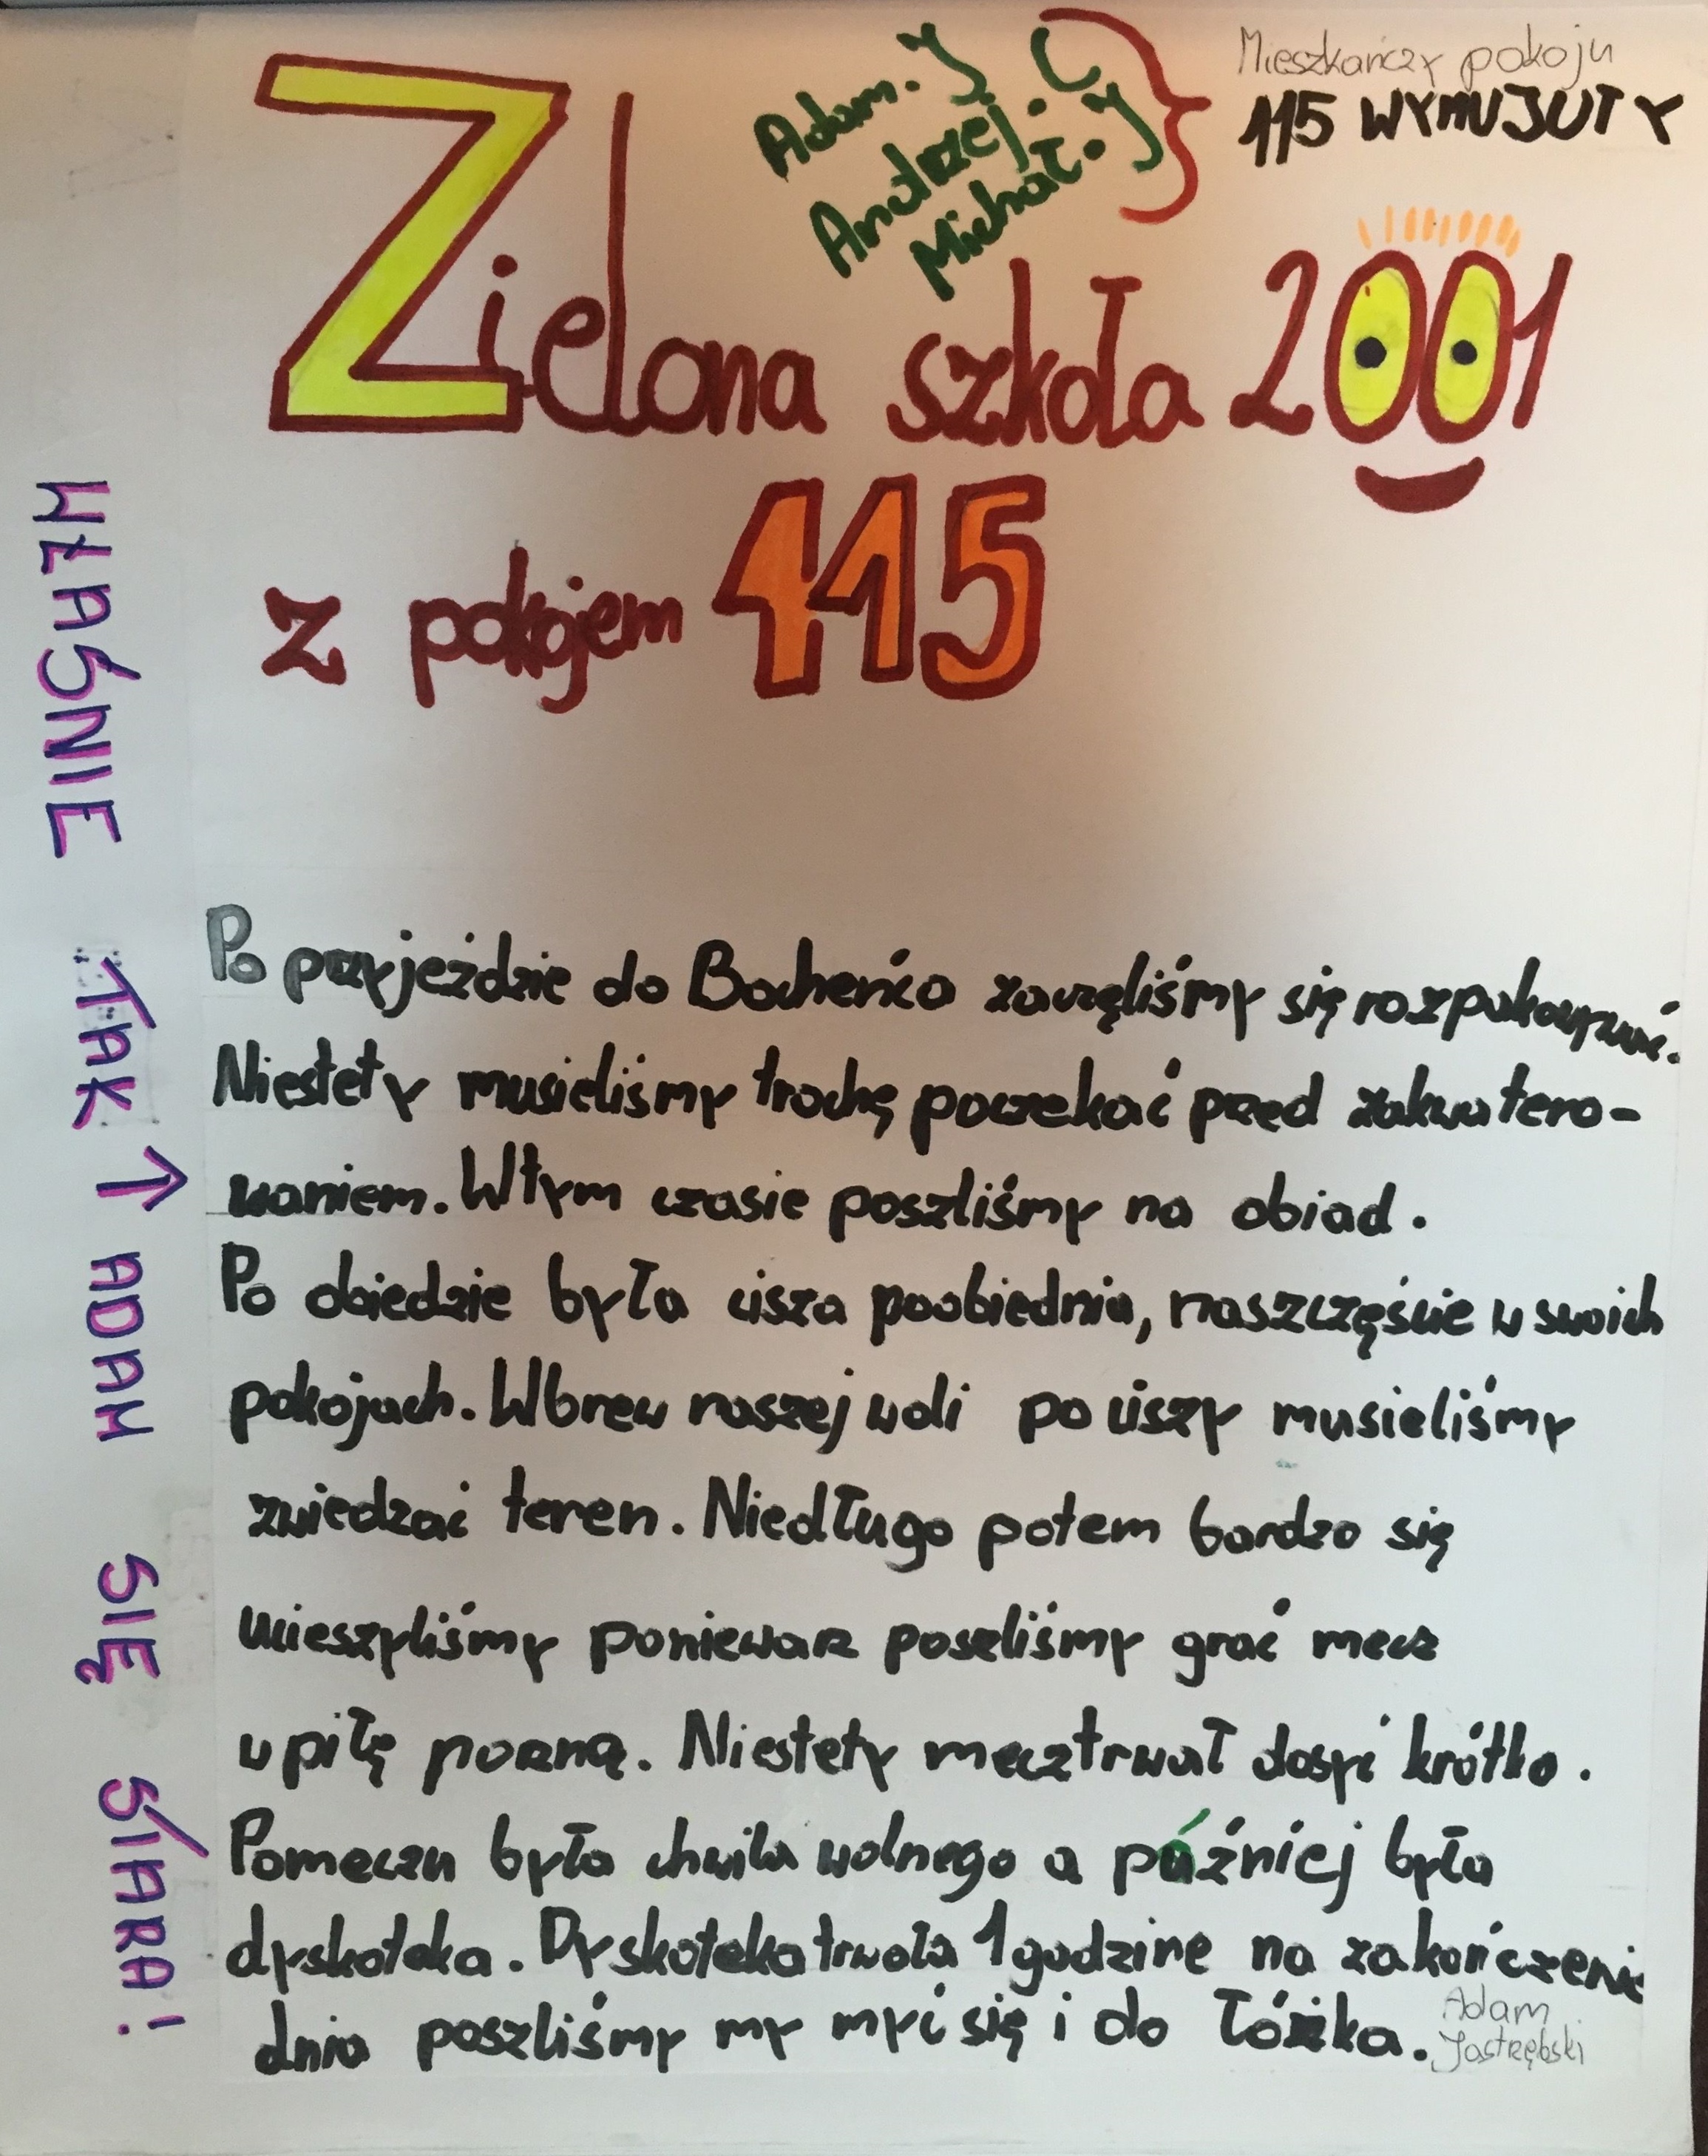 Adam. J
Andrzej. C
Michał. J
Mieszkańczy pokoju
115 WYMUJUTY
Zielona szkoła 2001
z pokojem 115
WŁAŚNIE TAK ↑ ADAM SIĘ STARA!
Po przyjeździe do Bocheńca zaczęliśmy się rozpakowywać.
Niestety musieliśmy trochę poczekać przed zakwatero-
waniem. W tym czasie poszliśmy na obiad.
Po obiedzie była cisza poobiednia, naszczęście w swoich
pokojach. Wbrew naszej woli po ciszy musieliśmy
zwiedzać teren. Niedługo potem bardzo się
ucieszyliśmy poniewarz poszliśmy grać mecz
w piłę norzną. Niestety mecz trwał dosyć krótko.
Pomeczu było chwila wolnego a później była
dyskoteka. Dyskoteka trwała 1 godzine na zakończenie
dnia poszliśmy my myć się i do łóżka.
Adam
Jastrzębski